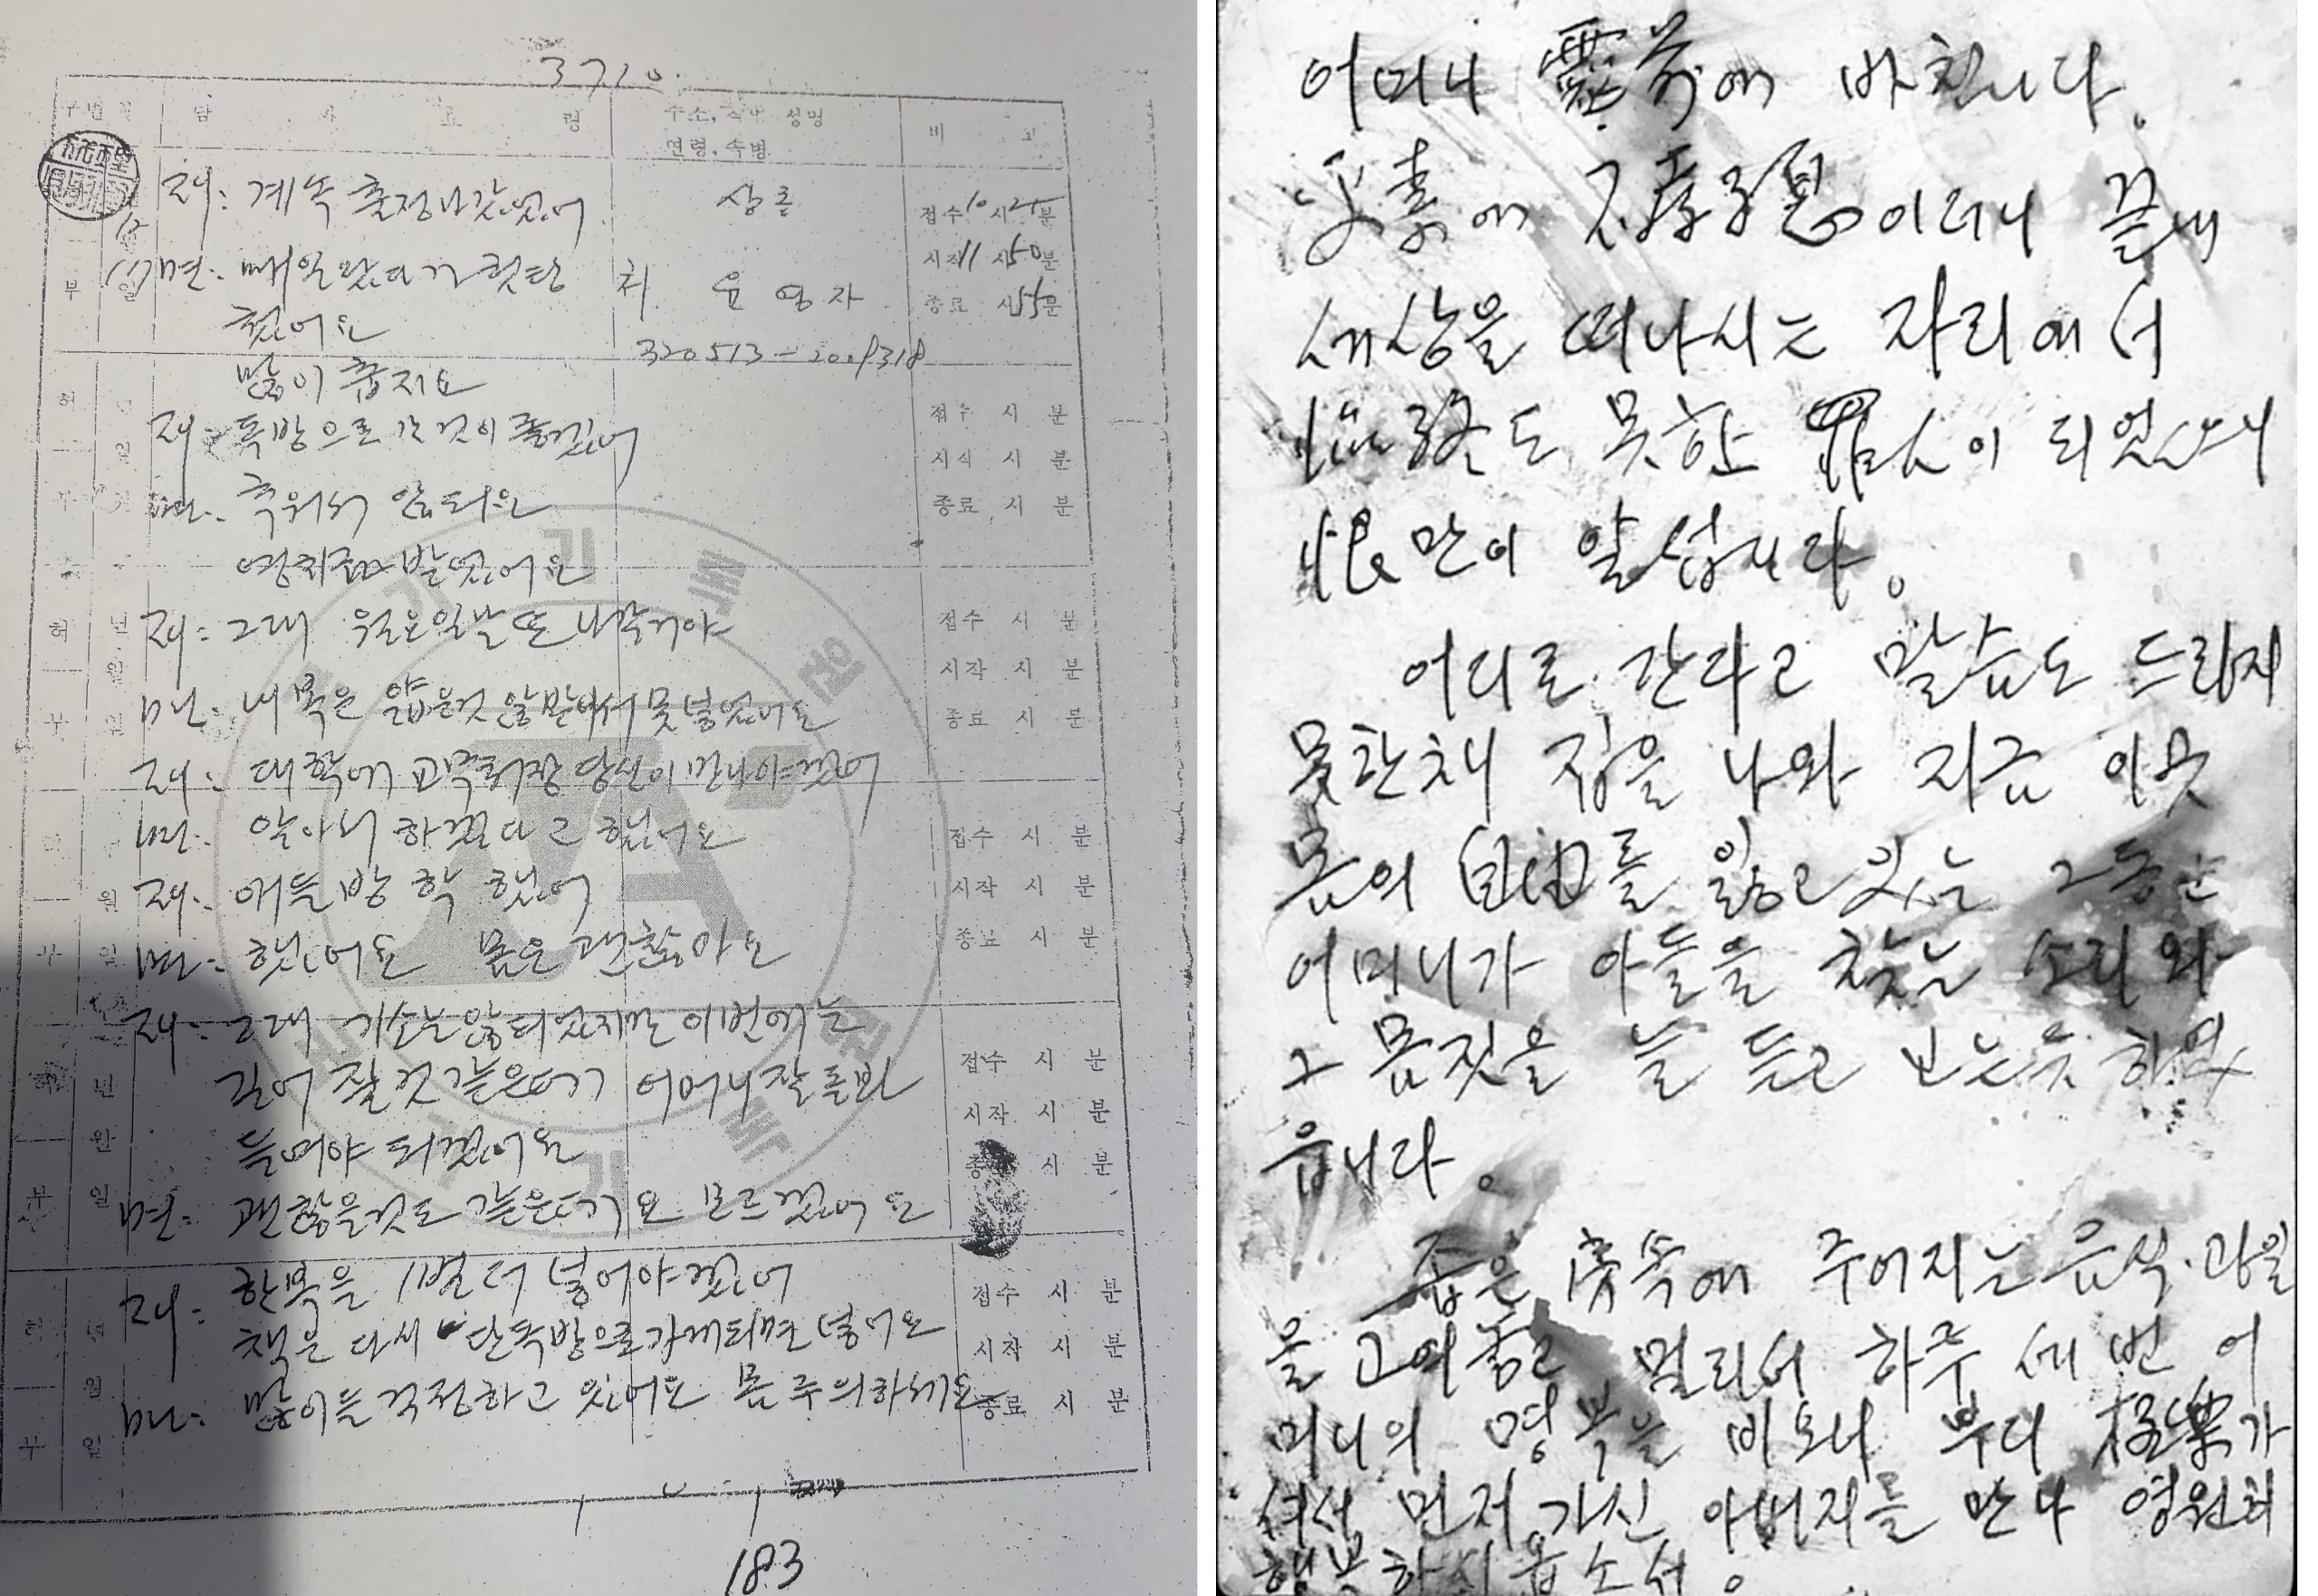 3710
담 사 요 령
주소, 직업 성명
연령, 수병
비 고
재: 계속 출정나갔었어
상 존
접수 10 시 25 분
시작 11 시 50 분
면: 매일 왔다가 헛탕
처 윤 영 자
종료 시 55 분
했어요
많이 춥지요
재: 독방으로 간 것이 좋겠어
접수 시 분
시작 시 분
면: 추워서 안돼요
종료 시 분
영치금 받았어요
재: 그래 월요일날 또 나갈거야
접수 시 분
시작 시 분
면: 내복은 얇은것 않받아서 못 넣었어요
종료 시 분
재: 대학에 교무처장 당신이 만나야겠어
면: 알아서 하겠다고 했어요
접수 시 분
재: 애들 방학 했어
시작 시 분
면: 했어요 몸은 괜찮아요
종료 시 분
재: 그래 기소는 않되었지만 이번에는
접수 시 분
길어 질것 같은데 어머니 잘 돌봐
시작 시 분
드려야 되겠어요
종료 시 분
면: 괜찮을것도 같은데요 모르겠어요
재: 한복을 1벌 더 넣어야겠어
접수 시 분
책은 다시 단독방으로 가게되면 넣어요
시작 시 분
면: 많이들 걱정하고 있어요 몸 주의하세요
종료 시 분
183
어머니 靈前에 바칩니다.
平素에 不孝子息이러니 끝내
세상을 떠나시는 자리에서
臨終도 못한 罪人이 되었으니
恨만이 앞섭니다.
어디로 간다고 말씀도 드리지
못한채 집을 나와 지금 이웃
몸의 自由를 잃고 있는 그동안
어머니가 아들을 찾는 소리와
그 몸짓을 늘 듣고 보는듯 하였
읍니다.
좁은 房속에 주어지는 음식·과일
을 고여놓고 멀리서 하루 세 번 어
머니의 명복을 비오니 부디 極樂가
셔서 먼저 가신 아버지를 만나 영원히
행복하시옵소서.